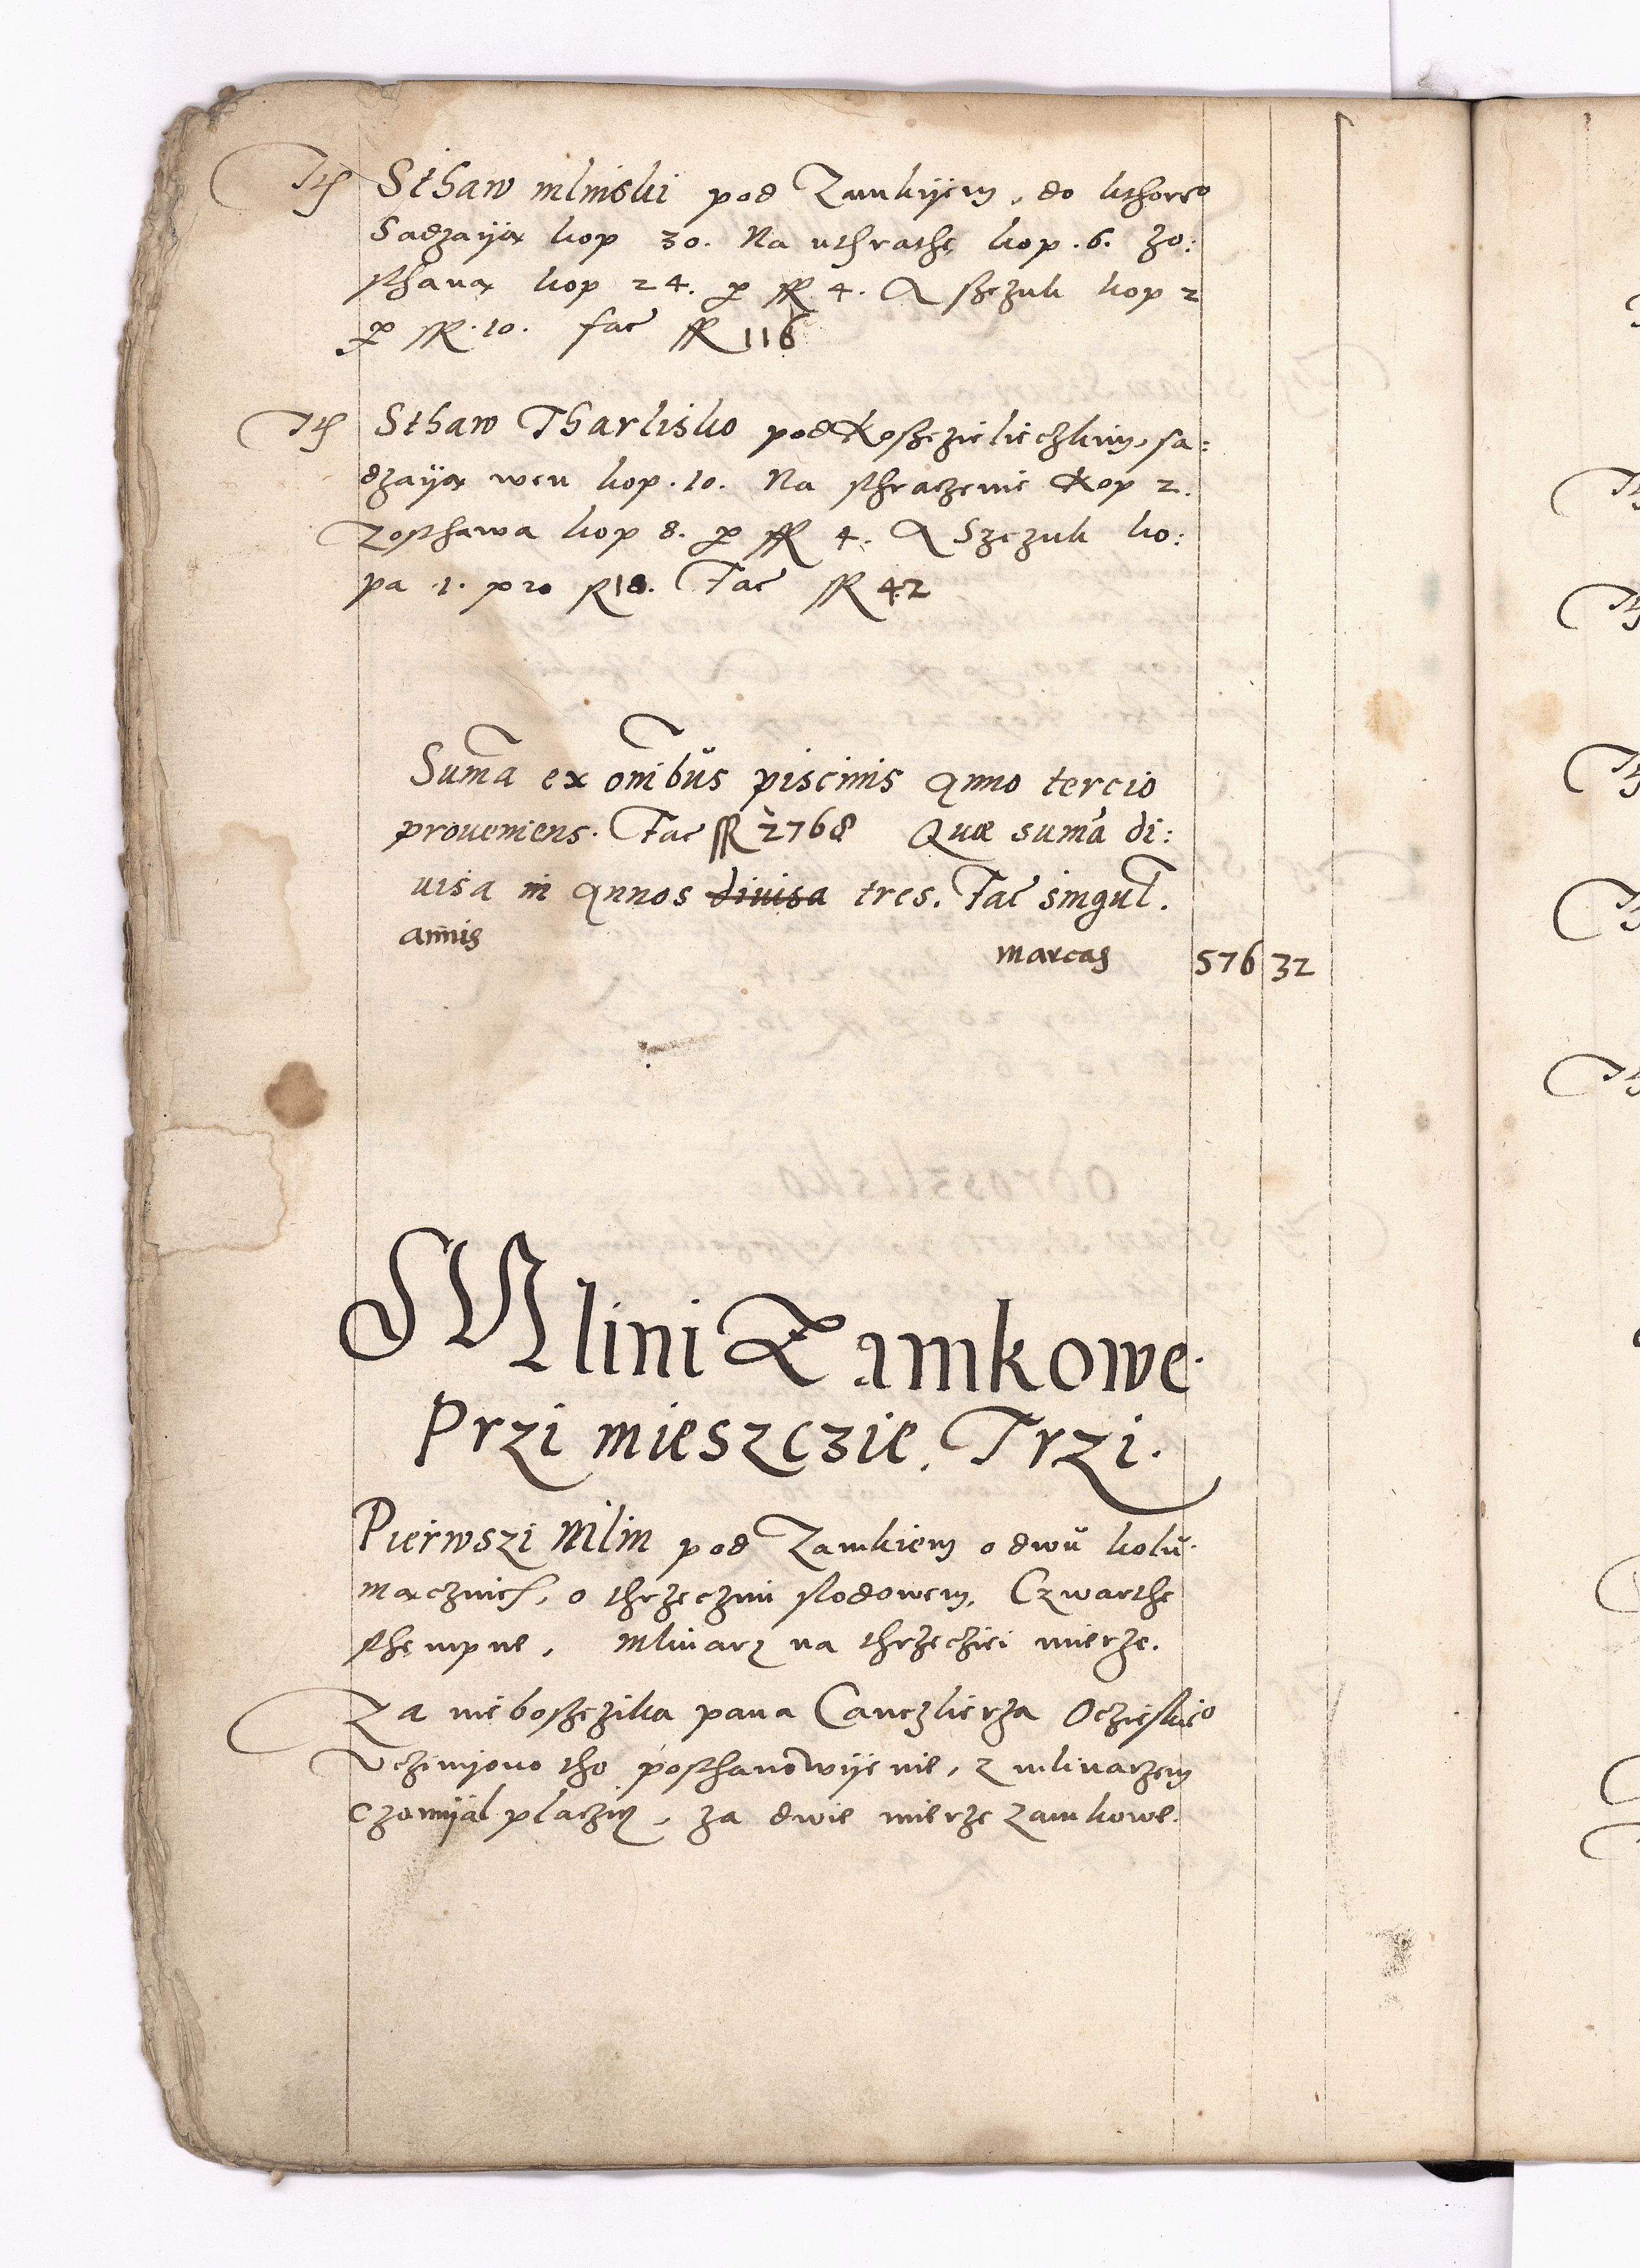 Ith Sthaw mlinski pod Zamkijem, do kthore°
Sadzaija kop 30. Na uthrathę kop .6. zo:
sthana kop 24. p fR 4. A szczuk kop 2
p fR .10. fac fR 116
Ith Sthaw Tharlisko pod Kosczieliczkim, sa:
dzaija wen kop .10. Na sthraczenie Kop 2.
Zosthawa kop 8. p fR 4. A Szczuk ko:
pa 1. pro R 10. Fac fR 42
Suma ex omibus piscinis anno tercio
proveniens. Fac fR 2768 Quæ suma di:
uisa in annos diuisa tres. Fac singul.
annis marcas 576 32
Mlini Zamkowe.
Przi miesczie. Trzi.
Pierwszi Mlin pod Zamkiem o dwu kolu.
macznich, o thrzeczim slodowem, Czwarthe
sthempne, Mlinarz na thrzecziei mierze.
Za nieboszczika pana Canczlierza Oczieskie°
Vczinijono tho posthanowijenie, z mlinarzem
czo mijal placzicz, za dwie mierze zamkowe.